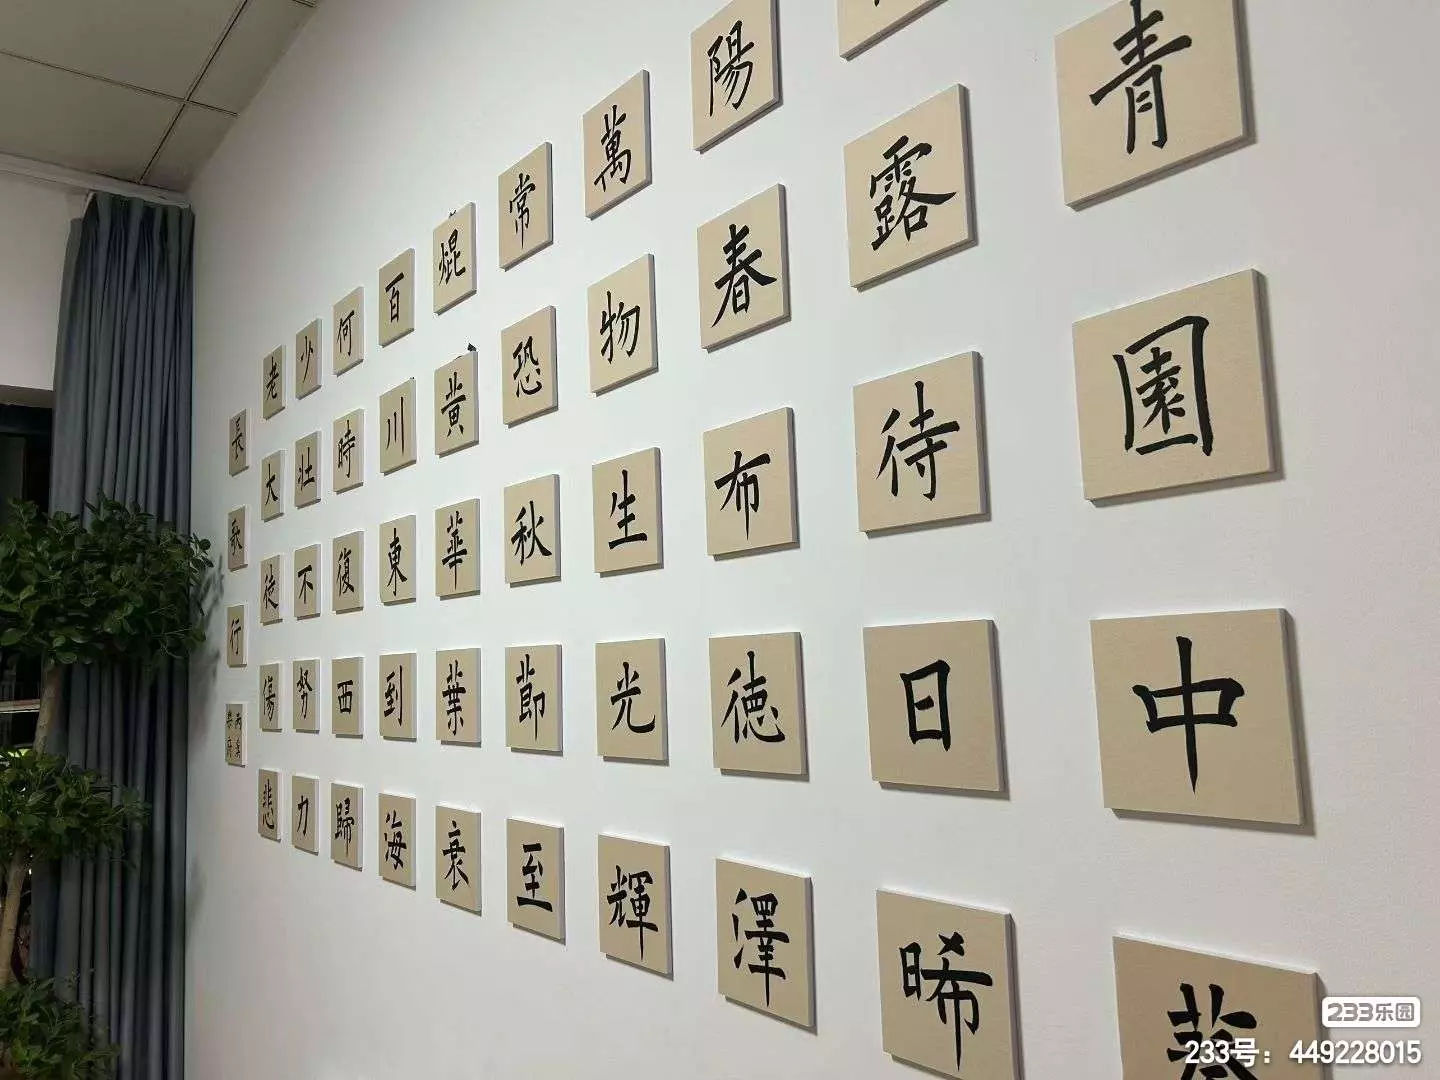 青園中葵
露待日晞
陽春布徳澤
萬物生光輝
常恐秋節至
焜黃華葉衰
百川東到海
何時復西歸
少壯不努力
老大徒傷悲
長歌行
兩漢
樂府
233乐园
233号：449228015